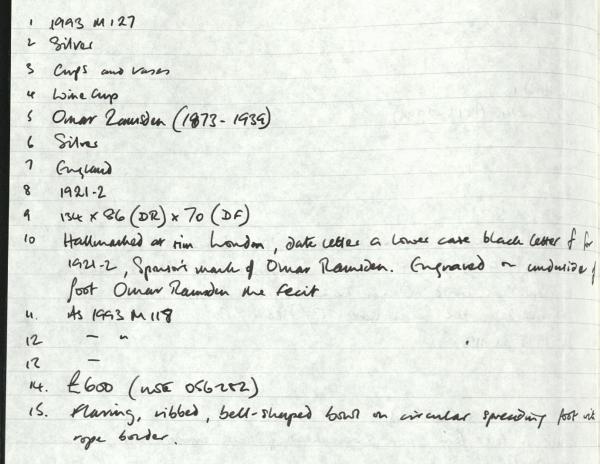 1 1993 M 127
2 Silver
3 Cups and vases
4 Wine Cup
5 Omar Ramsden (1873-1939)
6 Silver
7 England
8 1921-2
9 134 x 86 (DR) x 70 (DF)
10 Hallmarked at rim London, date letter a lower case black letter f for
1921-2, Sponsor's mark of Omar Ramsden. Engraved on underside of
foot Omar Ramsden me fecit
11. As 1993 M 118
12 — "
13 —
14. £600 (NSE 056252)
15. Flaring, ribbed, bell-shaped bowl on circular spreading foot with
rope border.